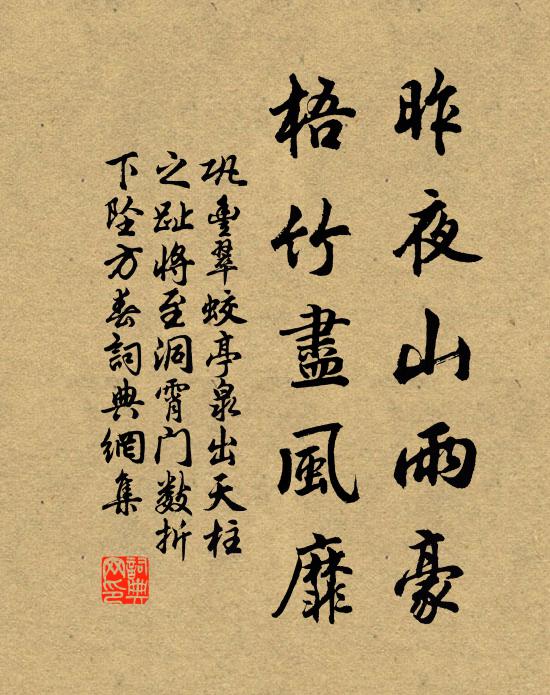 昨夜山雨豪
梧竹盡風靡
巩豊翠蛟亭泉出天柱
之趾將至洞霄门數折
下墜方春詞典網集
詞典网印